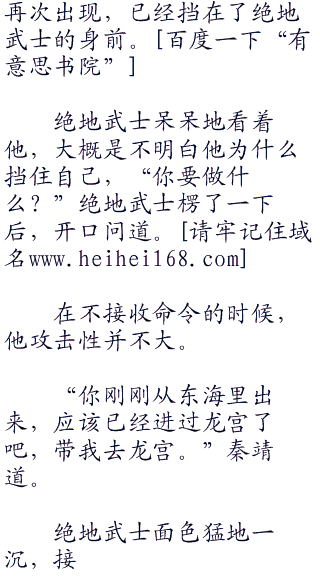 再次出现，已经挡在了绝地
武士的身前。[百度一下“有
意思书院”]
绝地武士呆呆地看着
他，大概是不明白他为什么
挡住自己，“你要做什
么？”绝地武士楞了一下
后，开口问道。[请牢记住域
名www.heihei168.com]
在不接收命令的时候，
他攻击性并不大。
“你刚刚从东海里出
来，应该已经进过龙宫了
吧，带我去龙宫。”秦靖
道。
绝地武士面色猛地一
沉，接